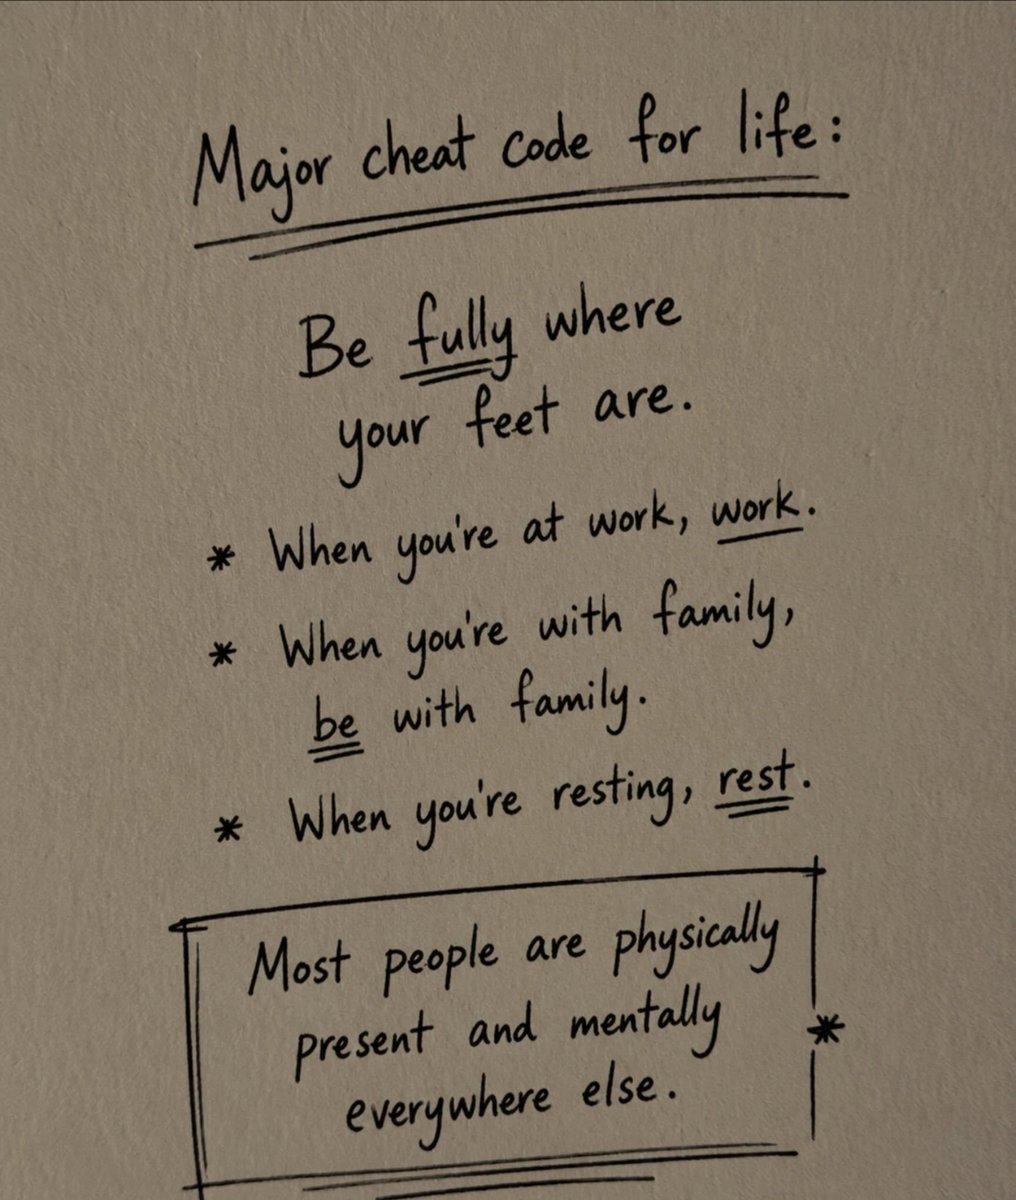 Major cheat code for life:
Be fully where
your feet are.
* When you're at work, work.
* When you're with family,
be with family.
* When you're resting, rest.
Most people are physically
present and mentally
everywhere else.
*